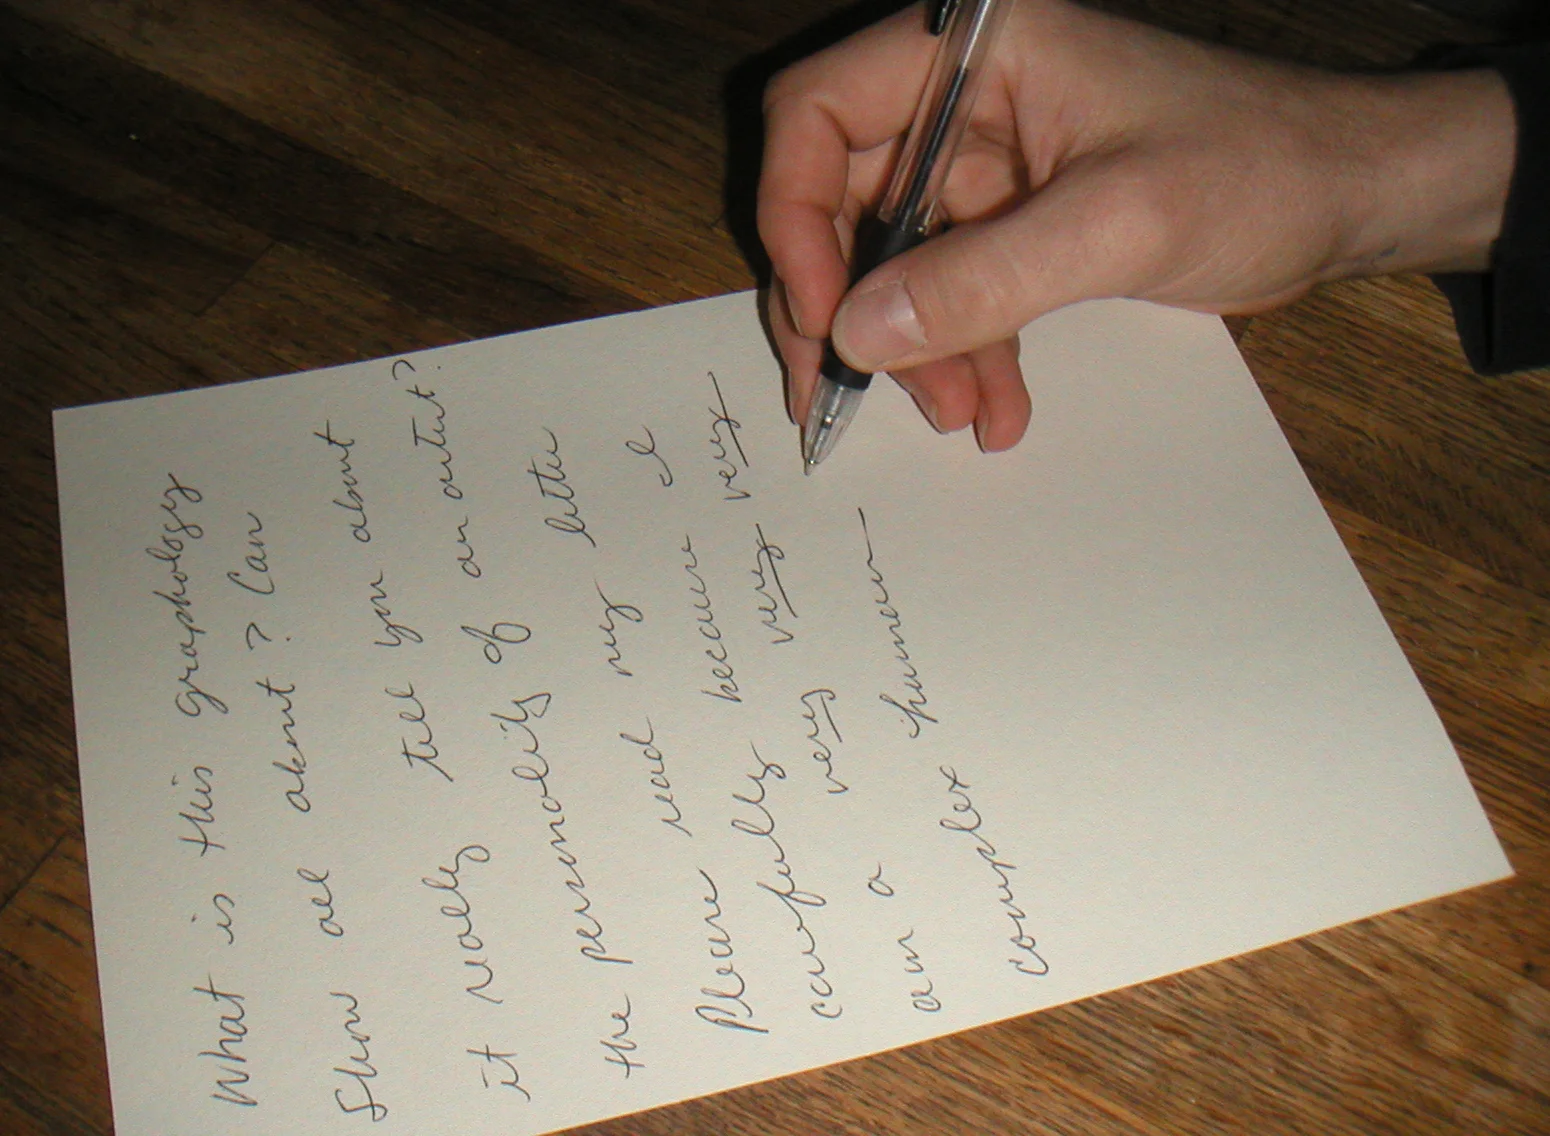 What is this graphology
Show all about? Can
it really tell you about
the personality of an artist?
Please read my letter
carefully because I
am a very very very
complex human —